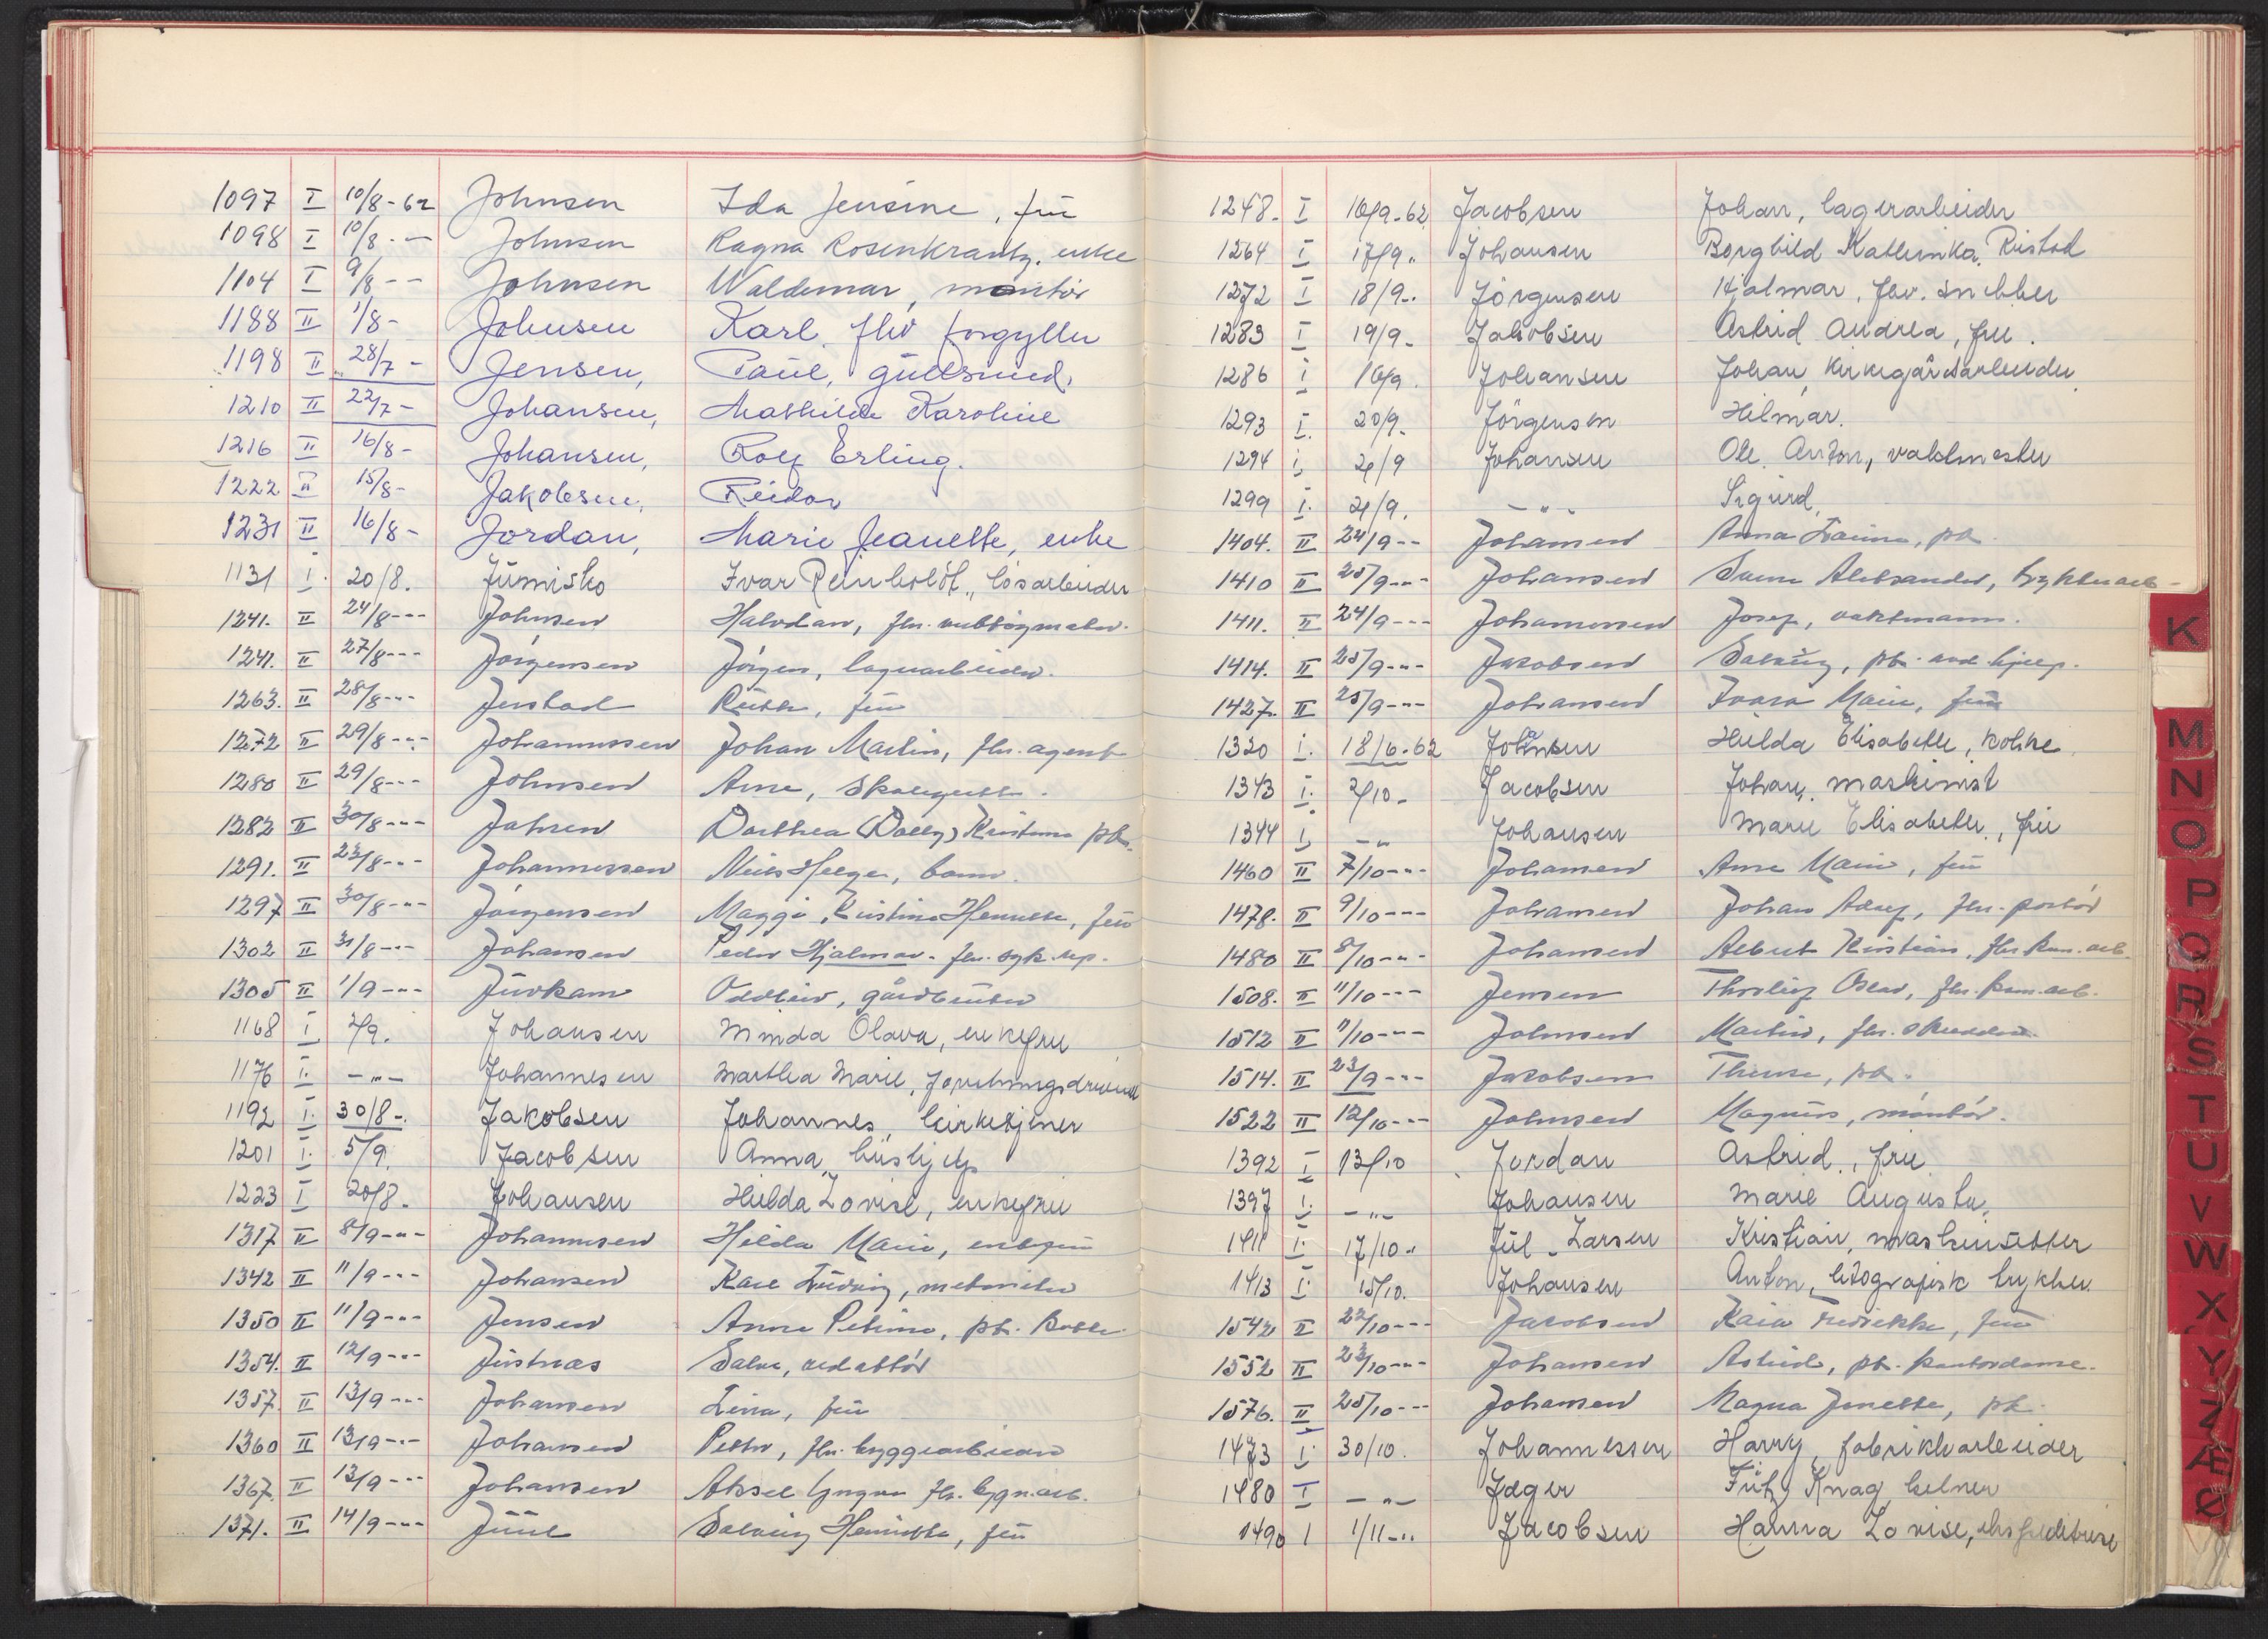 1097 I 10/8-62 Johnsen Ida Jensine, fru
1098 I 10/8 - - Johnsen Ragna Rosenkrantz, enke
1104 I 9/8 - - Johnsen Waldemar, montör
1188 II 1/8 - Johnsen Karl, fhv forgyller
1198 II 28/7 - Jensen, Paul, gullsmed.
1210 II 22/7 - Johansen, Mathilde Karoline
1216 II 16/8 - Johansen, Rolf Erling.
1222 II 15/8 - Jakobsen, Reidar
1231 II 16/8 - Jordan, Marie Jeanette, enke
1131 I. 20/8. Jumisko Ivar Reinholdt, løsarbeider
1241. II 24/8 - - - Johnsen Halvdan, fhv.
1241. II 27/8 - - - Jörgensen Jörgen, lagerarbeider.
1263. II 28/8 - - - Jerstad Ruth, fru
1272 II 29/8 - - - Johannessen Johan Martin, fhv. agent
1280 II 29/8 - - - Johnsen Arne,
1282 II 30/8 - - - Jahren Dorthea (Dolly) Kristine pk.
1291. II 23/8 - - - Johannessen Niels Helge, barn.
1297 II 30/8 - - - Jörgensen Maggi Kristine Henriette, fru
1302 II 31/8 - - - Johansen Peder Hjalmar. fhv. syk. rep.
1305 II 1/9 - - - Juvkam Oddleiv, gårdbruker
1168 I 2/9. Johansen Minda Olava, enkefru
1176 I. - " - Johannesen Marthea Marie, forretningsdrivende
1192 I. 30/8 -. Jakobsen Johannes, kirketjener
1201 I. 5/9. Jacobsen Anna, hushjelp
1223 I 20/8. Johansen Hilda Lovise, enkefru
1317 II 8/9 - - - Johannesen Hilda Marie, enkefru
1342 II 11/9 - - - Johansen Karl Ludvig,
1350 II 11/9 - - - Jensen Anna Petrine, pk.
1354. II 12/9 - - - Justnæs Salve, redaktör
1357. II 13/9 - - - Johansen Lina, fru
1360 II 13/9 - - - Johansen Petter, fhv. bryggearbeider
1367. II 13/9 - - - Johansen Aksel Yngvar fhv. bygn.arb.
1371. II 14/9 - - - Juul Solveig Henriette, fru
1248. I 16/9-62 Jacobsen Johan, lagerarbeider
1264 I 17/9 " Johansen Borghild Kathinka Ristad
1272 I 18/9 -. Jörgensen Hjalmar, fhv. snekker
1283 I 19/9 - Jakobsen Astrid Andrea, fru.
1286 I 16/9. Johansen Johan, kirkegårdsarbeider
1293 I. 20/9. Jörgensen Hilmar.
1294 I. 21/9 Johansen Ole Anton, vaktmester
1299 I. 21/9. - " - Sigurd.
1404. II 24/9 - - Johansen Anna Laura, pk.
1410 II 25/9 - - - Johansen Svenn Aleksander,
1411. II 24/9 - - - Johannessen Josef, vaktmann.
1414. II 25/9 - - - Jakobsen Solveig, pk.
1427. II 25/9 - - - Johansen Ivara Marie, fru
1320 I. 18/6-62 Johansen Hilda Elisabeth, kokke
1343 I. 2/10 - Jacobsen Johan, maskinist
1344 I. - " Johansen Marie Elisabeth, fru
1460 II 7/10 - - - Johansen Anna Marie, fru
1478. II 9/10 - - - Johansen Johan Adolf, fhv. portör
1480 II 8/10 - - - Johansen Albert Kristian, fhv. kom. arb.
1508. II 11/10 - - - Jensen Thorleif Oscar, fhv. kom. arb.
1512 II 11/10 - - - Johnsen Martin, fhv. skredder
1514. II 23/9 - - - Jakobsen Therese, pk.
1522 II 12/10 - - - Johnsen Magnus, montör.
1392 I 13/10 Jordan Astrid, fru
1397 I. - " - Johansen Marie Augusta.
1411 I. 17/10 " Jul-Larsen Kristian, maskinsetter
1413 I. 15/10. Johansen Anton, litografisk trykker
1542 II 22/10 - - - Jakobsen Kaia Fredrikke, fru
1552 II 23/10 - - - Johansen Astrid, pk. kontordame.
1576. II 25/10 - - - Johansen Magna Jonette, pk.
1473 I. 30/10. Johannessen Harry, fabrikkarbeider
1480 I - " - Jæger Fritz Knag, kelner
1490 I 1/11 -" Jacobsen Hanna Lovise, ekspeditrise
K
M
N
O
P
Q
R
S
T
U
V
W
X
Y
Z
Æ
Ø